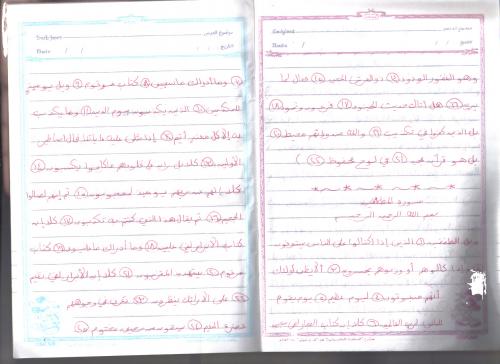 موضوع الدرس
Subject
Date / / التاريخ
وهو الغفور الودود ١٤ ذو العرش المجيد ١٥ فعال لما
يريد ١٦ هل أتاك حديث الجنود ١٧ فرعون وثمود ١٨
بل الذين كفروا في تكذيب ١٩ والله من ورائهم محيط ٢٠
بل هو قرآن مجيد ٢١ في لوح محفوظ ٢٢
سورة المطففين
بسم الله الرحمن الرحيم
ويل للمطففين ١ الذين إذا اكتالوا على الناس يستوفون
٢ وإذا كالوهم أو وزنوهم يخسرون ٣ ألا يظن أولئك
أنهم مبعوثون ٤ ليوم عظيم ٥ يوم يقوم
الناس لرب العالمين ٦ كلا إن كتاب الفجار لفي سجين
موضوع الدرس
Subject
Date / / التاريخ
٧ وما أدراك ما سجين ٨ كتاب مرقوم ٩ ويل يومئذ
للمكذبين ١٠ الذين يكذبون بيوم الدين ١١ وما يكذب
به إلا كل معتد أثيم ١٢ إذا تتلى عليه آياتنا قال أساطير
الأولين ١٣ كلا بل ران على قلوبهم ما كانوا يكسبون ١٤
كلا إنهم عن ربهم يومئذ لمحجوبون ١٥ ثم إنهم لصالوا
الجحيم ١٦ ثم يقال هذا الذي كنتم به تكذبون ١٧ كلا إن
كتاب الأبرار لفي عليين ١٨ وما أدراك ما عليون ١٩ كتاب
مرقوم ٢٠ يشهده المقربون ٢١ إن الأبرار لفي نعيم
٢٢ على الأرائك ينظرون ٢٣ تعرف في وجوههم
نضرة النعيم ٢٤ يسقون من رحيق مختوم ٢٥